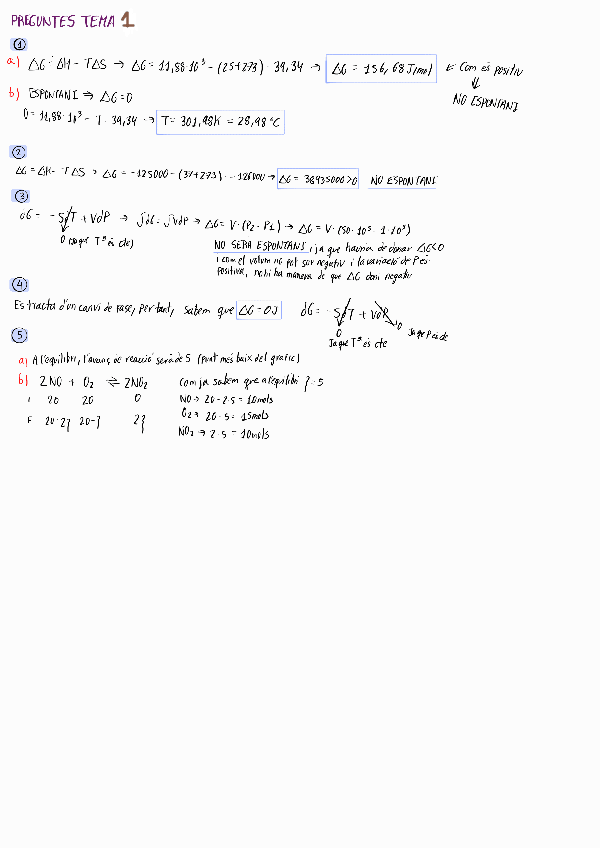 PREGUNTES TEMA 1
1
a) ΔG = ΔH - TΔS → ΔG = 11,88·10³ - (25+273) · 39,34 → ΔG = 156,68 J/mol ← Com és positiu
↓
NO ESPONTANI
b) ESPONTANI ⇒ ΔG=0
0 = 11,88·10³ - T · 39,34 → T = 301,98K = 28,98°C
2
ΔG = ΔH - TΔS → ΔG = -125000 - (37+273) · -126000 → ΔG = 38935000 > 0 NO ESPONTANI
3
dG = -SdT + VdP → ∫dG = ∫VdP → ΔG = V·(P2 - P1) → ΔG = V·(50·10⁵ - 1·10⁵)
0 (ja que Tª és cte)
NO SERÀ ESPONTANI, ja que hauria de donar ΔG<0
i com el volum no pot ser negatiu i la variació de P és
positiva, no hi ha manera de que ΔG doni negatiu
4
Es tracta d'un canvi de fase, per tant, sabem que ΔG = 0J dG = -SdT + VdP
0 0
Ja que Tª és cte Ja que P és cte
5
a) A l'equilibri, l'avanç de reacció serà de 5 (punt més baix del gràfic)
b) 2NO + O2 ⇌ 2NO2 com ja sabem que a l'equilibri ξ = 5
i 20 20 0 NO → 20 - 2·5 = 10mols
F 20-2ξ 20-ξ 2ξ O2 → 20-5 = 15mols
NO2 → 2·5 = 10mols